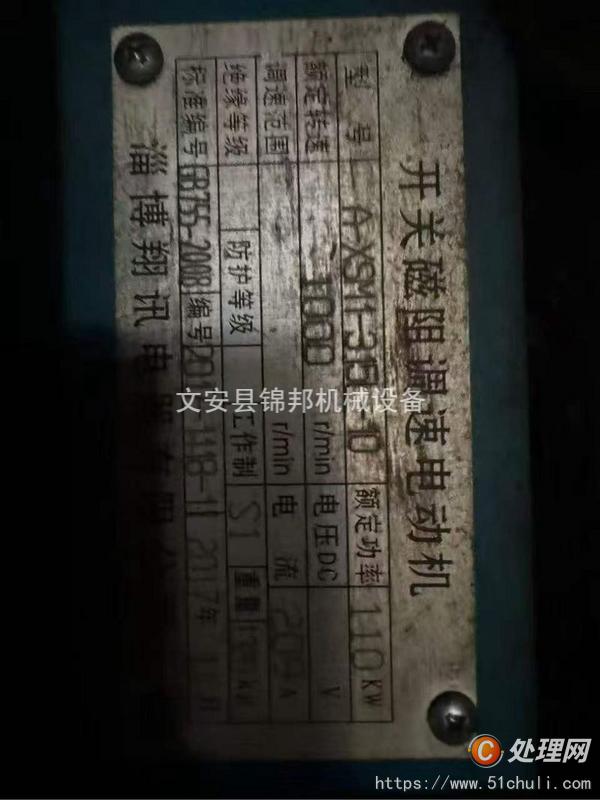 开关磁阻调速电动机
型号 A-XSM1-315 -10 额定功率 110 KW
额定转速 1000 r/min 电压DC V
调速范围 r/min 电流 209 A
绝缘等级 防护等级 工作制 S1 重量
标准编号 GB755-2008 编号 2017年 月
淄博翔讯电
文安县锦邦机械设备
处理网
https://www.51chuli.com